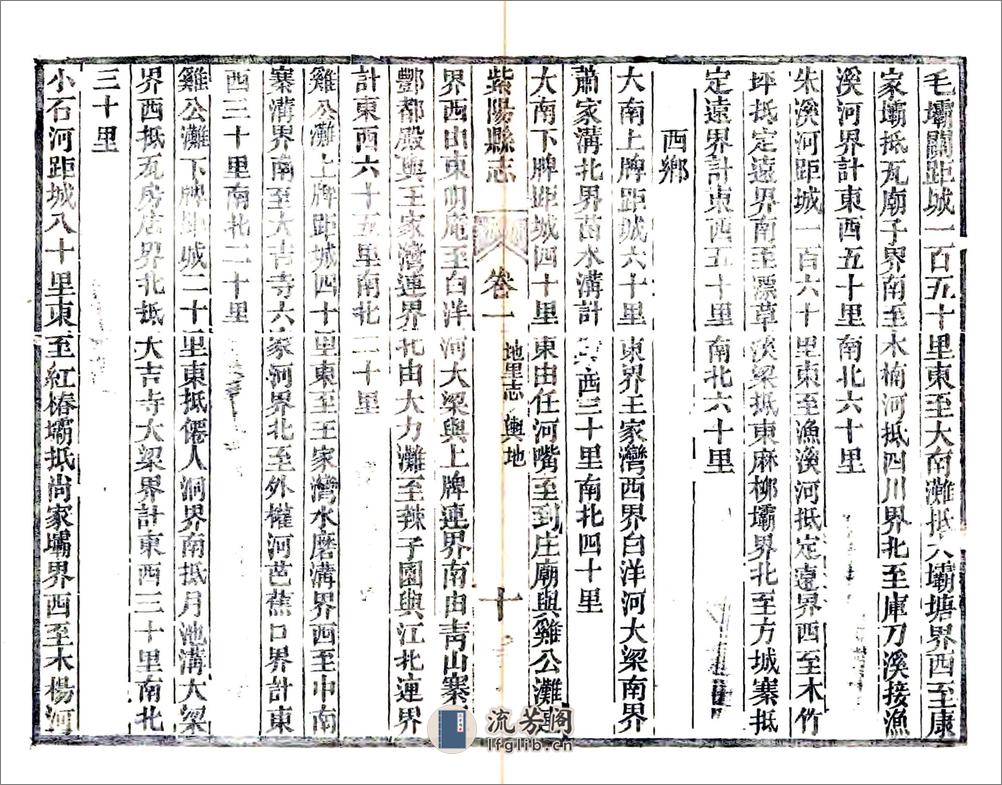 毛壩關距城一百五十里東至大南灘抵六壩塘界西至康
家壩抵瓦廟子界南至木楠河抵四川界北至庫刀溪接漁
溪河界計東西五十里南北六十里
朱溪河距城一百六十里東至漁溪河抵定遠界西至木竹
坪抵定遠界南至漂草淡梁抵東麻柳壩界北至方城寨抵
定遠界計東西五十里南北六十里
西鄉
大南上牌距城六十里東界王家灣西界白洋河大梁南界
蕭家溝北界苗水溝計東西三十里南北四十里
大南下牌距城四十里東由任河嘴至到庄廟與雞公灘連
紫陽縣志 卷一 地里志 輿地 十
界西由東明庵至白洋河大梁與上牌連界南由青山寨
酆都殿與王家灣連界北由大力灘至辣子園與江北連界
計東西六十五里南北二十里
雞公灘上牌距城四十里東至王家灣水磨溝界西至中南
寨溝界南至大吉寺六家河界北至外權河芭蕉口界計東
西三十里南北二十里
雞公灘下牌距城二十里東抵僊人洞界南抵月池溝大梁
界西抵瓦房店界北抵大吉寺大梁界計東西三十里南北
三十里
小石河距城八十里東至紅椿壩抵尚家壩界西至木楊河
流芳阁
lfglib.cn